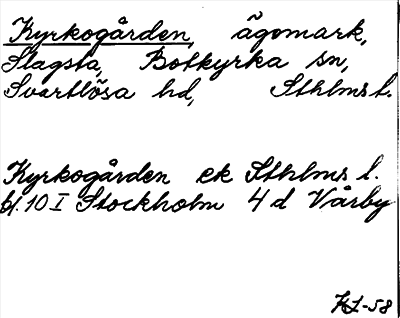 Kyrkogården, ägomark,
Slagsta, Botkyrka sn,
Svartlösa hd, Sthlms l.
Kyrkogården ek Sthlms l.
bl. 10 I Stockholm 4 d Vårby
KL-58